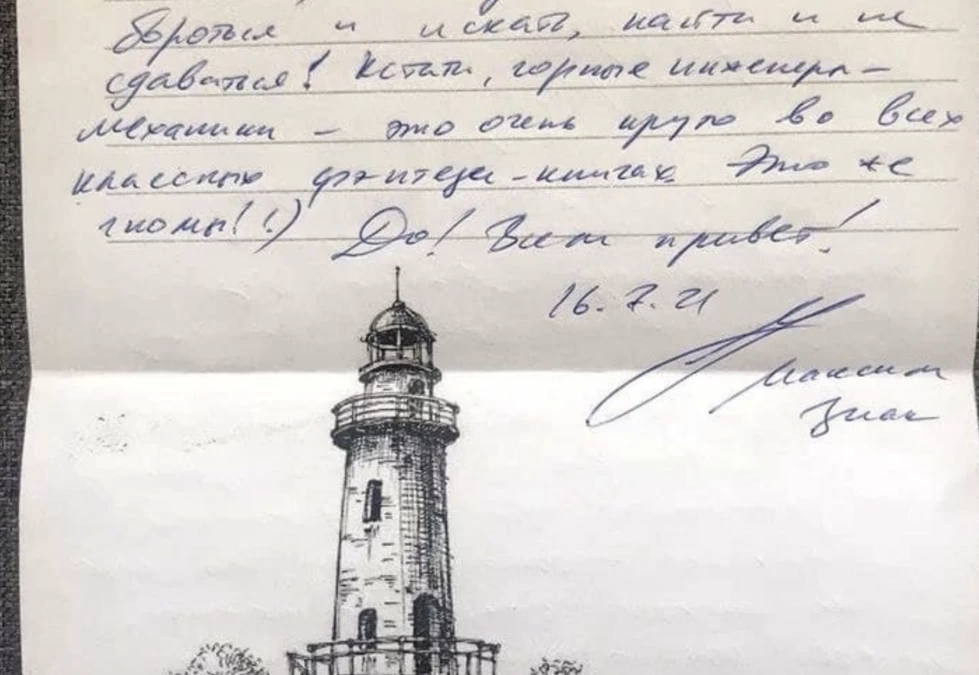 бороться и искать, найти и не
сдаваться! Кстати, горные инженеры-
механики - это очень круто во всех
классных фэнтези-книгах. Это же
гномы! :)
Да! Всем привет!
16.7.21
Максим
Знак